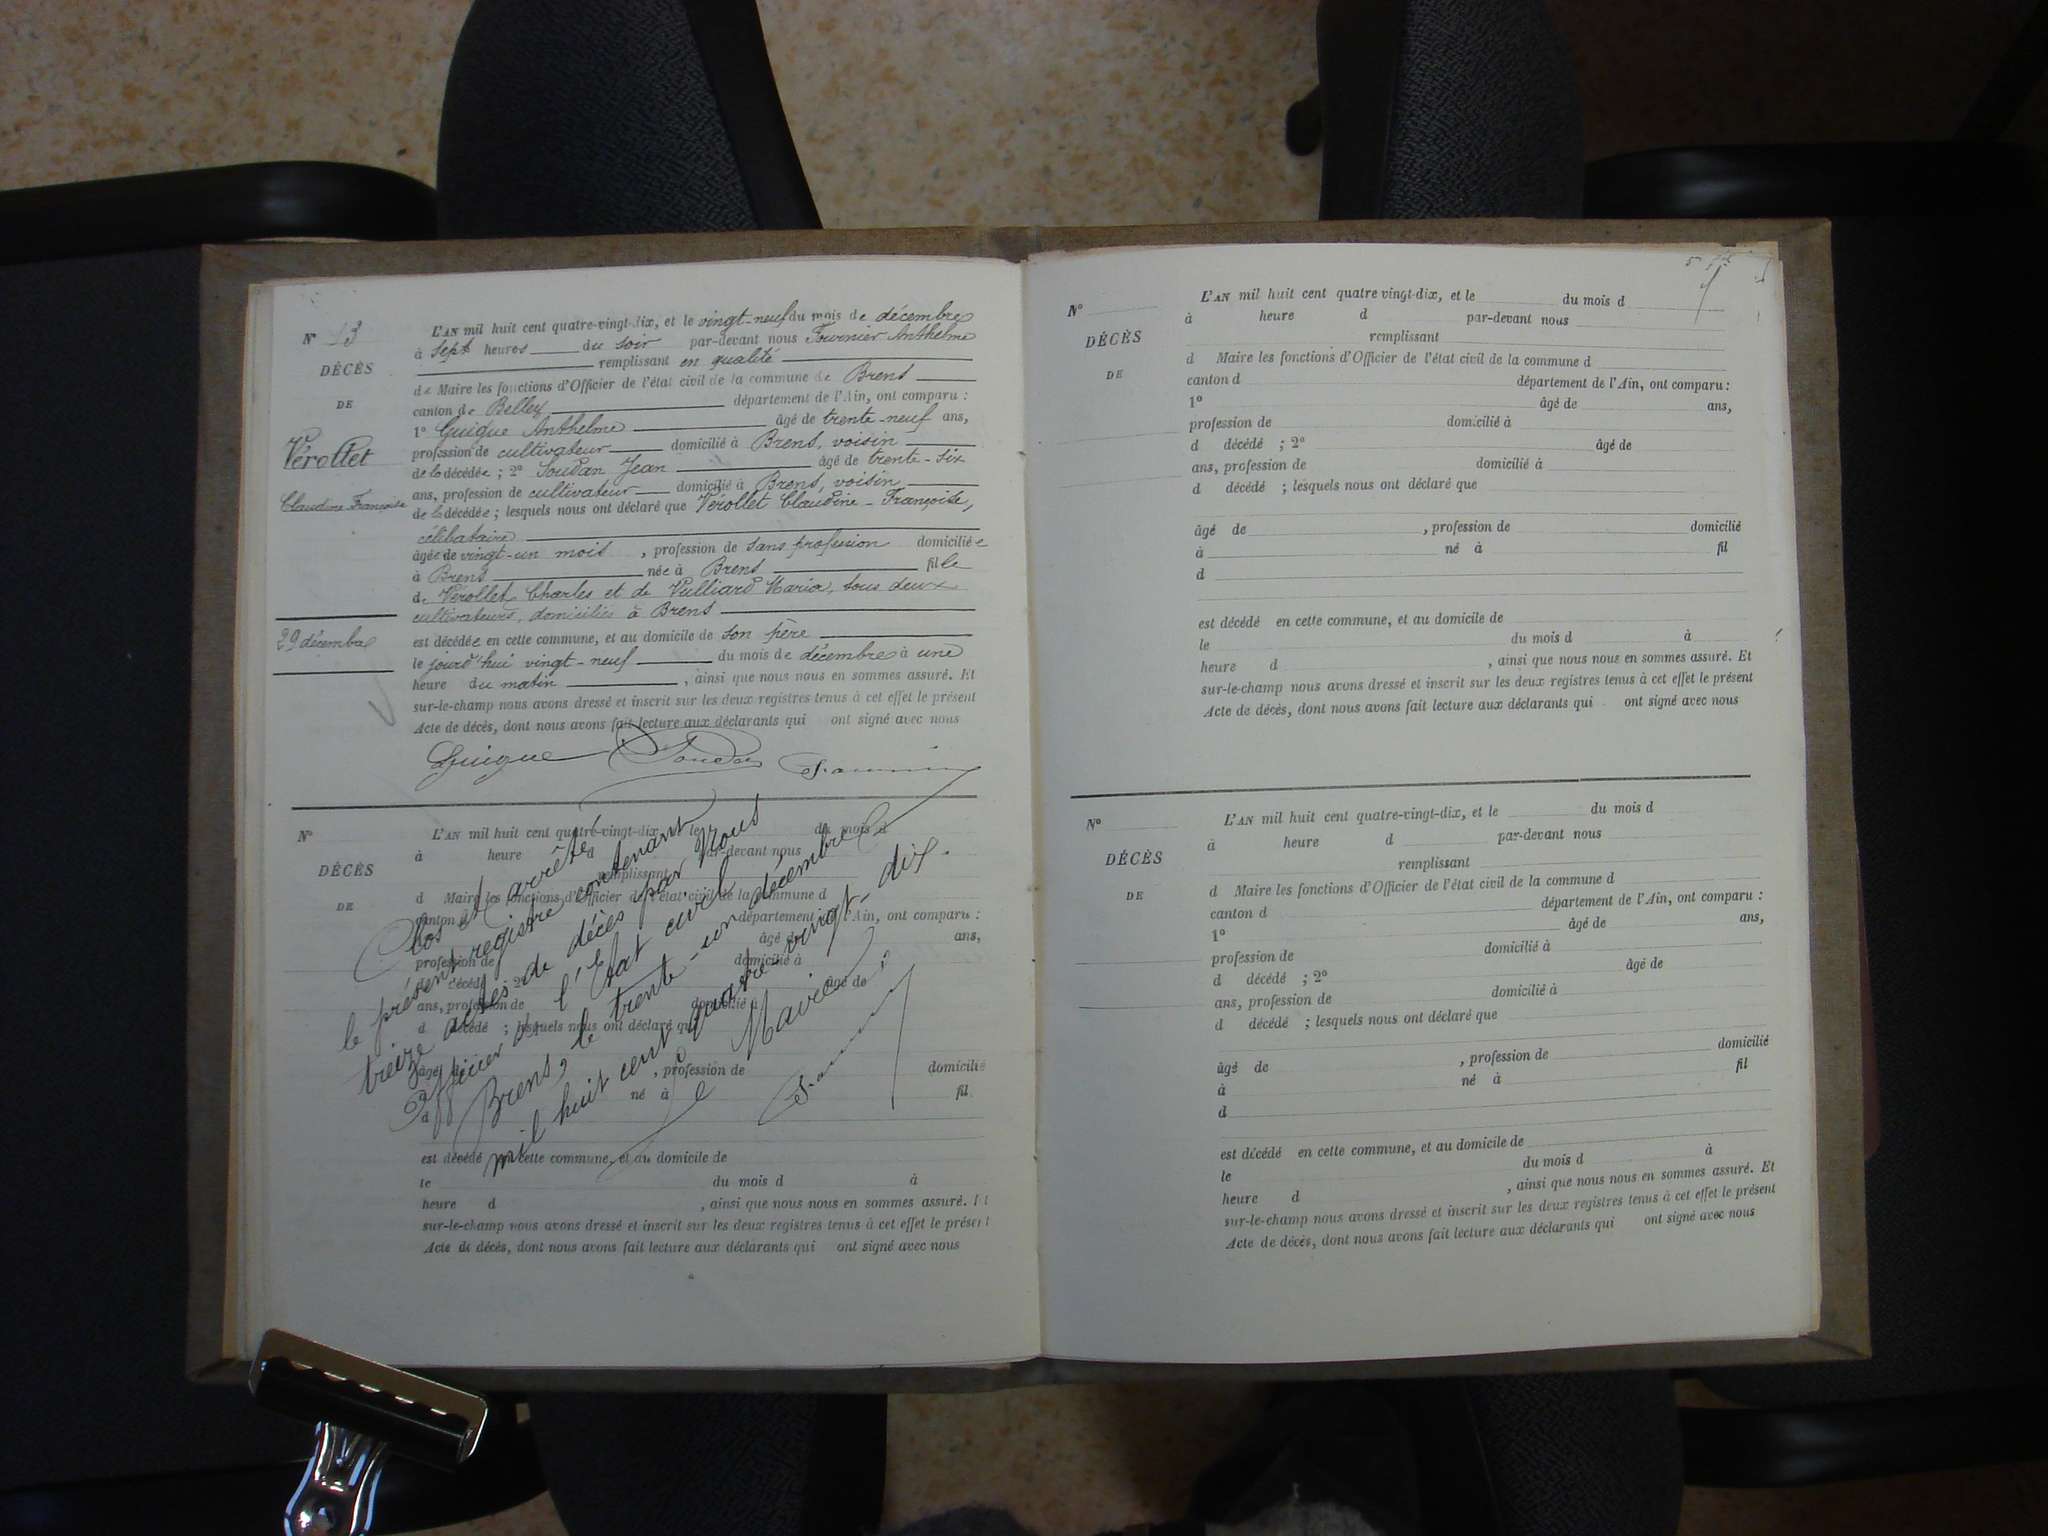 N° 13
DÉCÈS
DE
Vérollet
Claudine Françoise
29 décembre
L'AN mil huit cent quatre-vingt-dix, et le vingt-neuf du mois de décembre
à sept heures du soir par-devant nous Fournier Anthelme
remplissant en qualité
de Maire les fonctions d'Officier de l'état civil de la commune de Brens
canton de Belley département de l'Ain, ont comparu :
1° Guigue Anthelme âgé de trente-neuf ans,
profession de cultivateur domicilié à Brens, voisin
de la décédée ; 2° Soudan Jean âgé de trente-six
ans, profession de cultivateur domicilié à Brens, voisin
de la décédée ; lesquels nous ont déclaré que Vérollet Claudine-Françoise,
célibataire
âgée de vingt-un mois, profession de sans profession domiciliée
à Brens née à Brens fille
de Vérollet Charles et de Vulliard Maria, tous deux
cultivateurs, domiciliés à Brens
est décédée en cette commune, et au domicile de son père
le jourd'hui vingt-neuf du mois de décembre à une
heure du matin, ainsi que nous nous en sommes assuré. Et
sur-le-champ nous avons dressé et inscrit sur les deux registres tenus à cet effet le présent
Acte de décès, dont nous avons fait lecture aux déclarants qui ont signé avec nous
Guigue Soudan
N°
DÉCÈS
DE
L'AN mil huit cent quatre-vingt-dix, et le du mois d
à heure d par-devant nous
remplissant
d Maire les fonctions d'Officier de l'état civil de la commune d
canton d département de l'Ain, ont comparu :
1° âgé de ans,
profession de domicilié à
d décédé ; 2° âgé de
ans, profession de domicilié à
d décédé ; lesquels nous ont déclaré que
âgé de , profession de domicilié
à né à fil
d
est décédé en cette commune, et au domicile de
le du mois d à
heure d , ainsi que nous nous en sommes assuré. Et
sur-le-champ nous avons dressé et inscrit sur les deux registres tenus à cet effet le présent
Acte de décès, dont nous avons fait lecture aux déclarants qui ont signé avec nous
Clos et arrêté
le présent registre contenant
treize actes de décès par Nous
Officier de l'État civil
Brens, le trente-un décembre
mil huit cent quatre-vingt-dix.
Le Maire,
N°
DÉCÈS
DE
L'AN mil huit cent quatre vingt-dix, et le du mois d
à heure d par-devant nous
remplissant
d Maire les fonctions d'Officier de l'état civil de la commune d
canton d département de l'Ain, ont comparu :
1° âgé de ans,
profession de domicilié à
d décédé ; 2° âgé de
ans, profession de domicilié à
d décédé ; lesquels nous ont déclaré que
âgé de , profession de domicilié
à né à fil
d
est décédé en cette commune, et au domicile de
le du mois d à
heure d , ainsi que nous nous en sommes assuré. Et
sur-le-champ nous avons dressé et inscrit sur les deux registres tenus à cet effet le présent
Acte de décès, dont nous avons fait lecture aux déclarants qui ont signé avec nous
N°
DÉCÈS
DE
L'AN mil huit cent quatre-vingt-dix, et le du mois d
à heure d par-devant nous
remplissant
d Maire les fonctions d'Officier de l'état civil de la commune d
canton d département de l'Ain, ont comparu :
1° âgé de ans,
profession de domicilié à
d décédé ; 2° âgé de
ans, profession de domicilié à
d décédé ; lesquels nous ont déclaré que
âgé de , profession de domicilié
à né à fil
d
est décédé en cette commune, et au domicile de
le du mois d à
heure d , ainsi que nous nous en sommes assuré. Et
sur-le-champ nous avons dressé et inscrit sur les deux registres tenus à cet effet le présent
Acte de décès, dont nous avons fait lecture aux déclarants qui ont signé avec nous